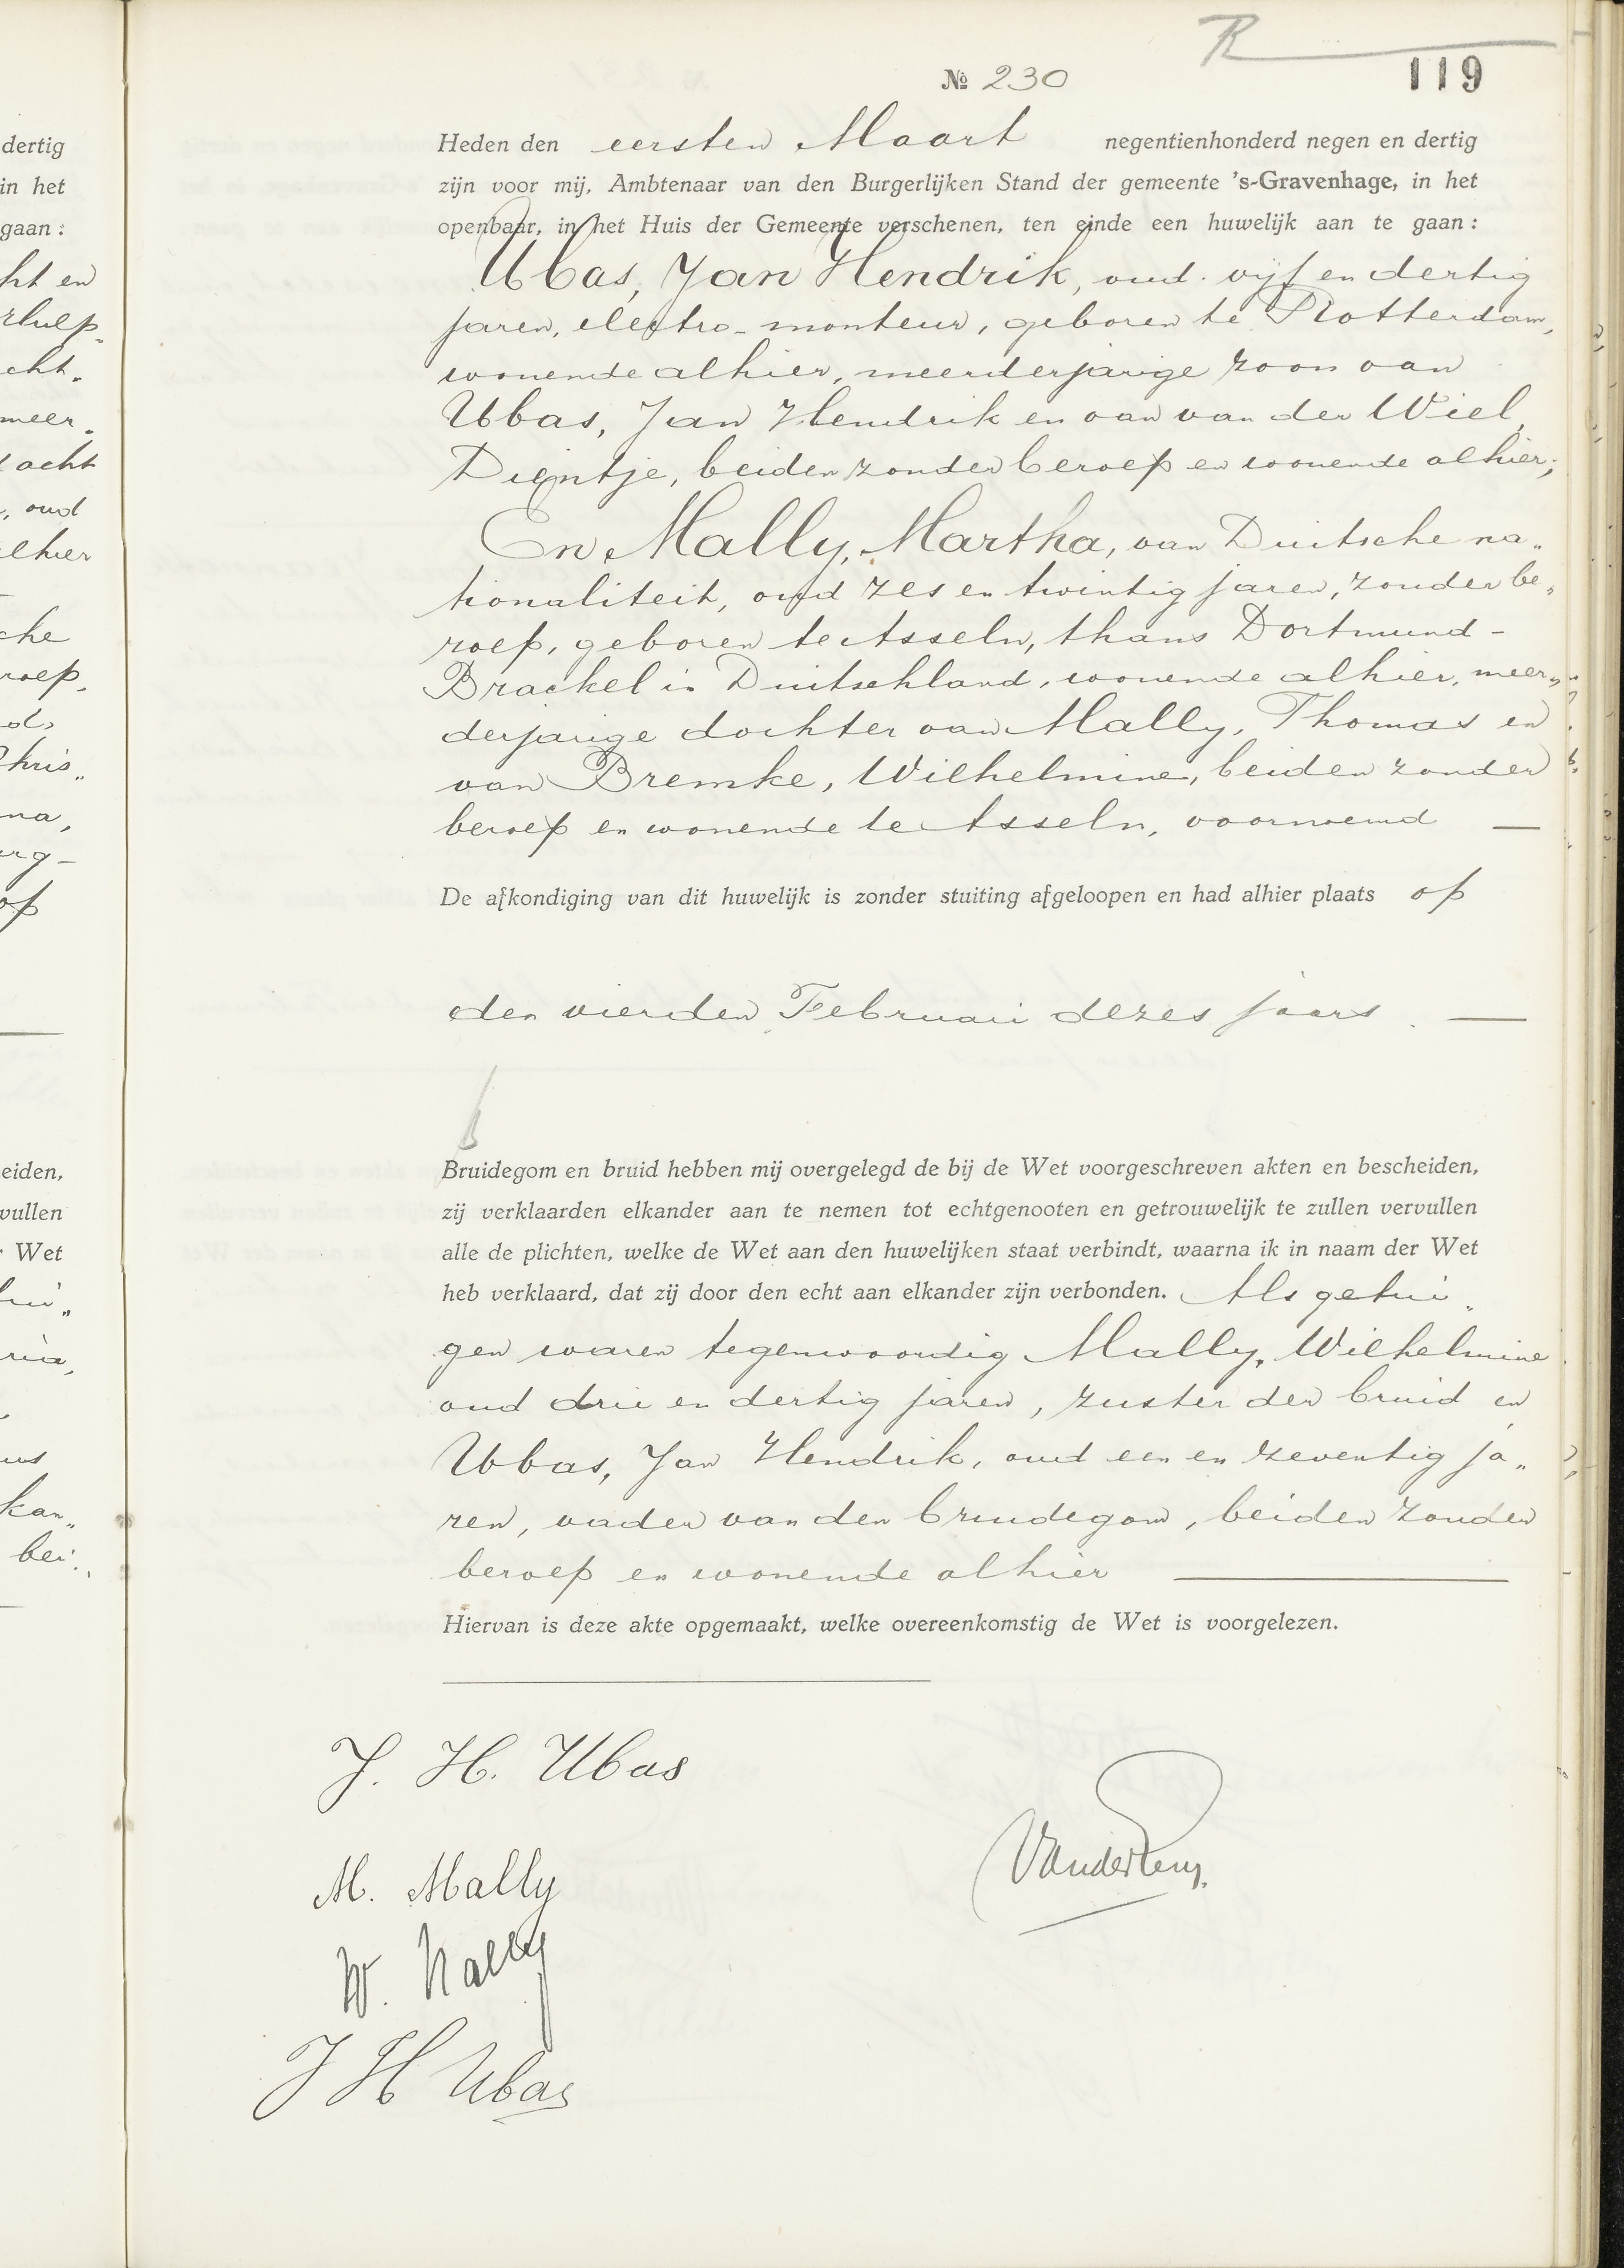 R
№ 230
119
Heden den eersten Maart negentienhonderd negen en dertig
zijn voor mij, Ambtenaar van den Burgerlijken Stand der gemeente 's-Gravenhage, in het
openbaar, in het Huis der Gemeente verschenen, ten einde een huwelijk aan te gaan:
Ubas, Jan Hendrik, oud vijf en dertig
jaren, electro-monteur, geboren te Rotterdam,
wonende alhier, meerderjarige zoon van
Ubas, Jan Hendrik en van van der Wiel,
Dientje, beiden zonder beroep en wonende alhier;
En Mally, Martha, van Duitsche na„
tionaliteit, oud zes en twintig jaren, zonder be„
roep, geboren te Asseln, thans Dortmund-
Brackel in Duitschland, wonende alhier, meer„
derjarige dochter van Mally, Thomas en
van Bremke, Wilhelmine, beiden zonder
beroep en wonende te Asseln, voornoemd —
De afkondiging van dit huwelijk is zonder stuiting afgeloopen en had alhier plaats op
den vierden Februari dezes jaars. —
Bruidegom en bruid hebben mij overgelegd de bij de Wet voorgeschreven akten en bescheiden,
zij verklaarden elkander aan te nemen tot echtgenooten en getrouwelijk te zullen vervullen
alle de plichten, welke de Wet aan den huwelijken staat verbindt, waarna ik in naam der Wet
heb verklaard, dat zij door den echt aan elkander zijn verbonden. Als getui„
gen waren tegenwoordig Mally, Wilhelmine
oud drie en dertig jaren, zuster der bruid en
Ubas, Jan Hendrik, oud een en zeventig ja„
ren, vader van den bruidegom, beiden zonder
beroep en wonende alhier —
Hiervan is deze akte opgemaakt, welke overeenkomstig de Wet is voorgelezen.
J. H. Ubas
M. Mally
W. Mally
J H Ubas